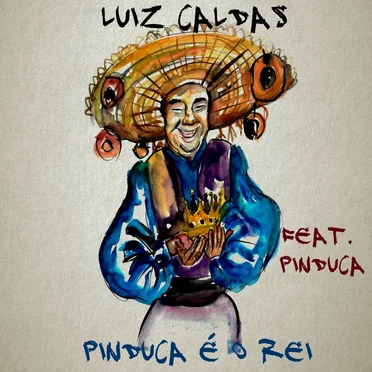 LUIZ CALDAS
FEAT.
PINDUCA
PINDUCA É O REI